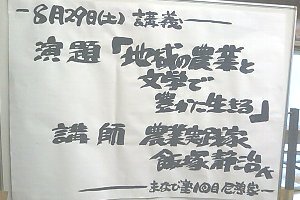 -8月29日(土) 講義-
演題「地球の農業と
文学で
豊かに生きる」
講師 農業実践家
飯塚静治氏
まなび塾1回目